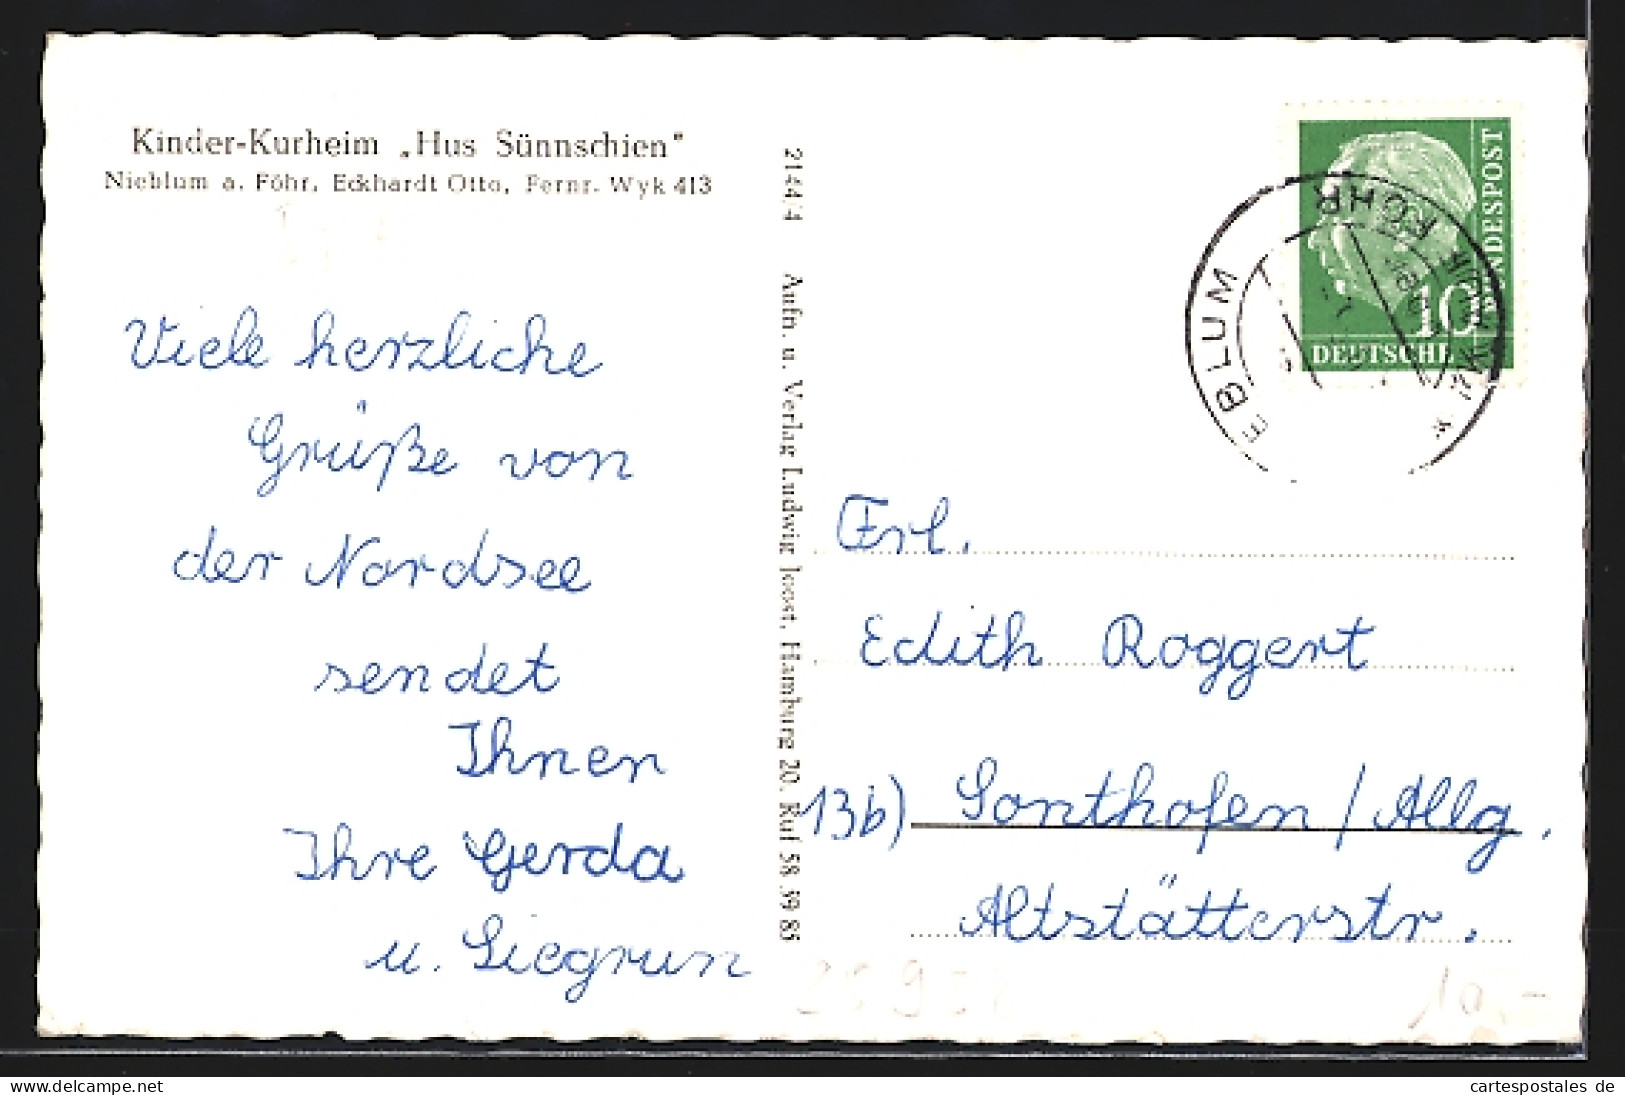 Kinder-Kurheim „Hus Sünnschien"
Nieblum a. Föhr, Eckhardt Otto, Fernr. Wyk 413
Viele herzliche
Grüße von
der Nordsee
sendet
Ihnen
Ihre Gerda
u. Siegrun
2144/4 Aufn. u. Verlag Ludwig Joost, Hamburg 20, Ruf 58 39 85
DEUTSCHE
BUNDESPOST
10
EBLUM
FÖHR
Frl.
Edith Roggert
13b) Sonthofen / Allg.
Altstätterstr.
10,-
cartespostales de